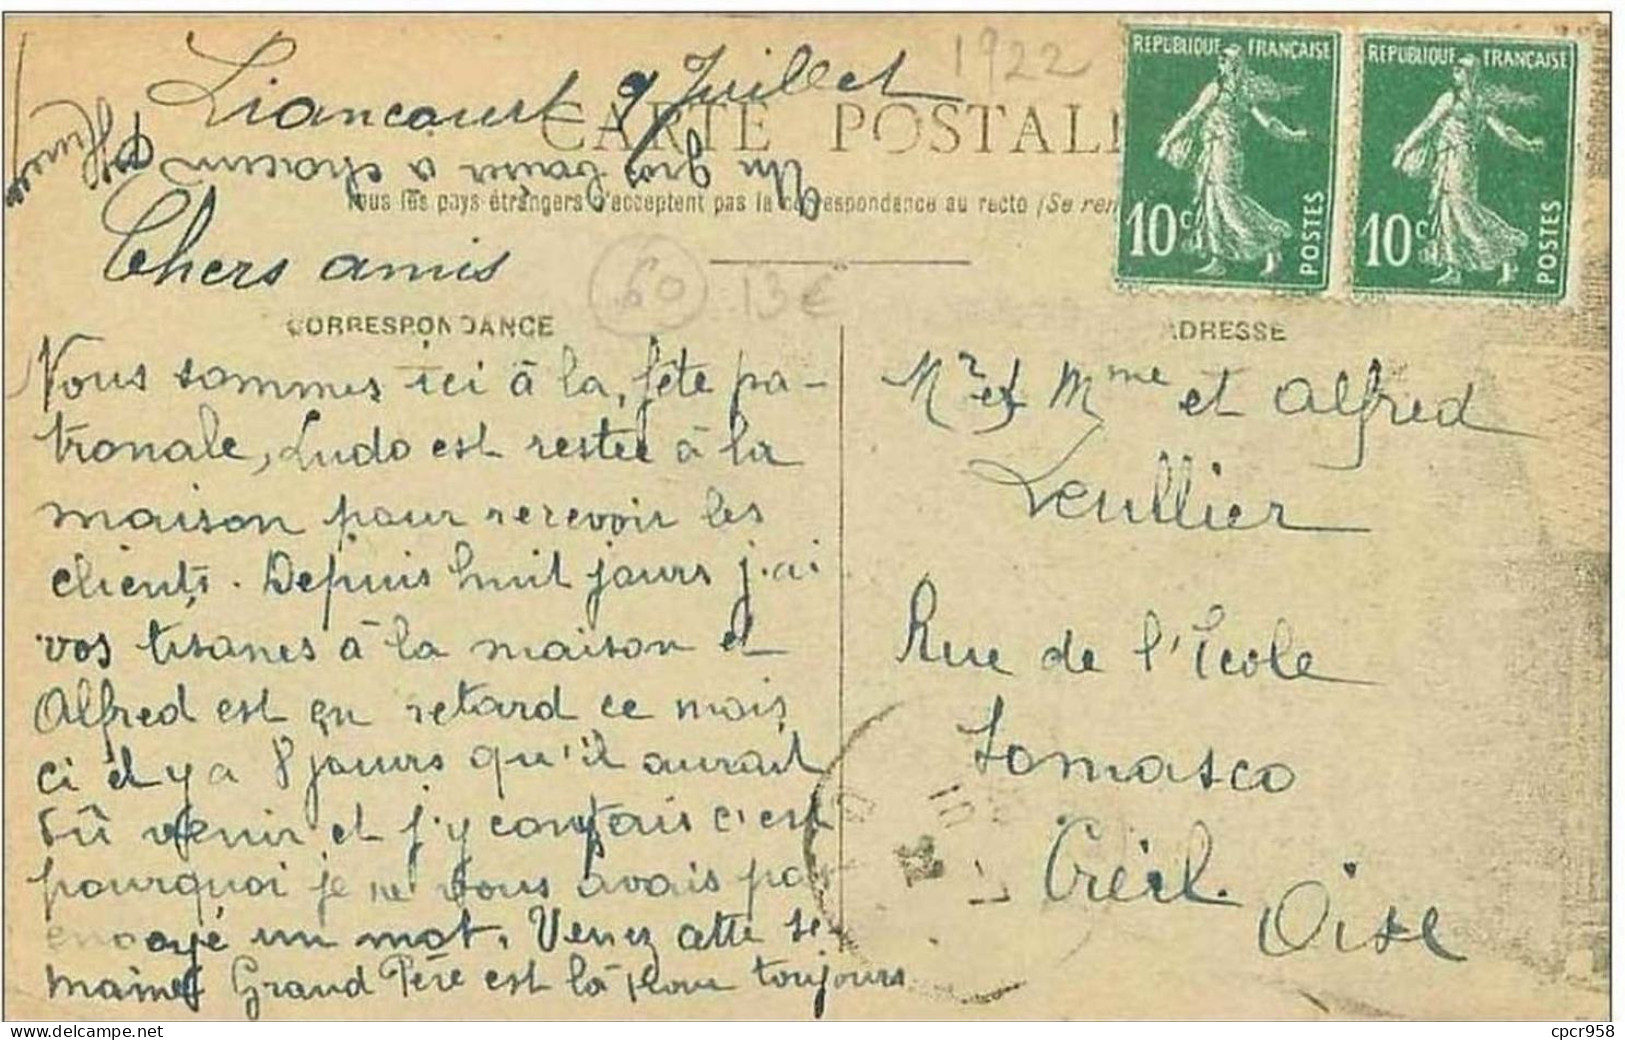 Liancourt 9 Juillet
1922
CARTE POSTALE
Un gros baiser à chacun
Tous les pays étrangers n'acceptent pas la correspondance au recto (Se ren
Chers amis
60
13€
CORRESPONDANCE
Vous sommes ici à la, fête pa-
tronale, Ludo est restée à la
maison pour recevoir les
clients. Depuis huit jours j'ai
vos tisanes à la maison et
Alfred est en retard ce mois
ci il y a 8 jours qu'il aurait
dû venir et j'y comptais c'est
pourquoi je ne vous avais pas
envoyé un mot. Venez cette se-
maine Grand Père est là pour toujours
REPUBLIQUE FRANÇAISE
10c
POSTES
REPUBLIQUE FRANÇAISE
10c
POSTES
ADRESSE
Mr et Mme et Alfred
Leullier
Rue de l'École
Tomasco
Creil.
Oise
delcampe.net
cpcr958